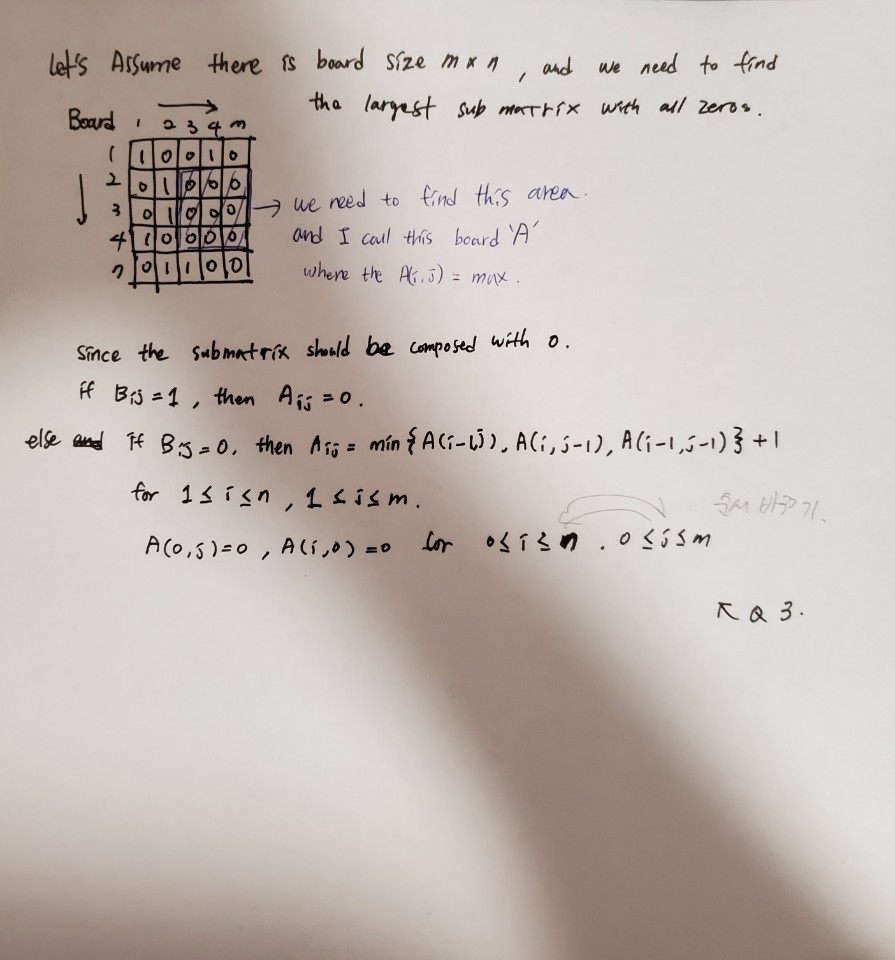 Let's Assume there is board size m x n , and we need to find
the largest sub matrix with all zeros.
Board 1 2 3 4 m
1 1 0 0 1 0
2 0 1 0 0 0
3 0 1 0 0 0
4 1 0 0 0 0
n 0 1 1 0 0
→ we need to find this area.
and I call this board 'A'
where the A(i,j) = max .
Since the submatrix should be composed with 0.
if Bij = 1 , then Aij = 0 .
else and if Bij = 0, then Aij = min { A(i-1,j), A(i,j-1), A(i-1,j-1) } + 1
for 1 ≤ i ≤ n , 1 ≤ j ≤ m .
순서 바꾸기.
A(0,j)=0 , A(i,0) = 0 for 0 ≤ i ≤ n . 0 ≤ j ≤ m
↖ Q 3.